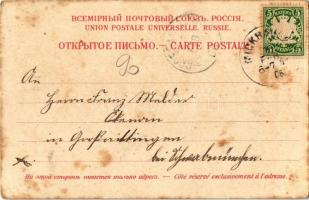 ВСЕМІРНЫЙ ПОЧТОВЫЙ СОЮЗЪ. РОССІЯ.
UNION POSTALE UNIVERSELLE. RUSSIE.
ОТКРЫТОЕ ПИСЬМО. — CARTE POSTALE
5 5
96
An
Herrn Franz
in Großaitingen
bei Schwabmünchen.
На этой сторонѣ пишется только адресъ. — Côté réservé exclusivement à l'adresse.